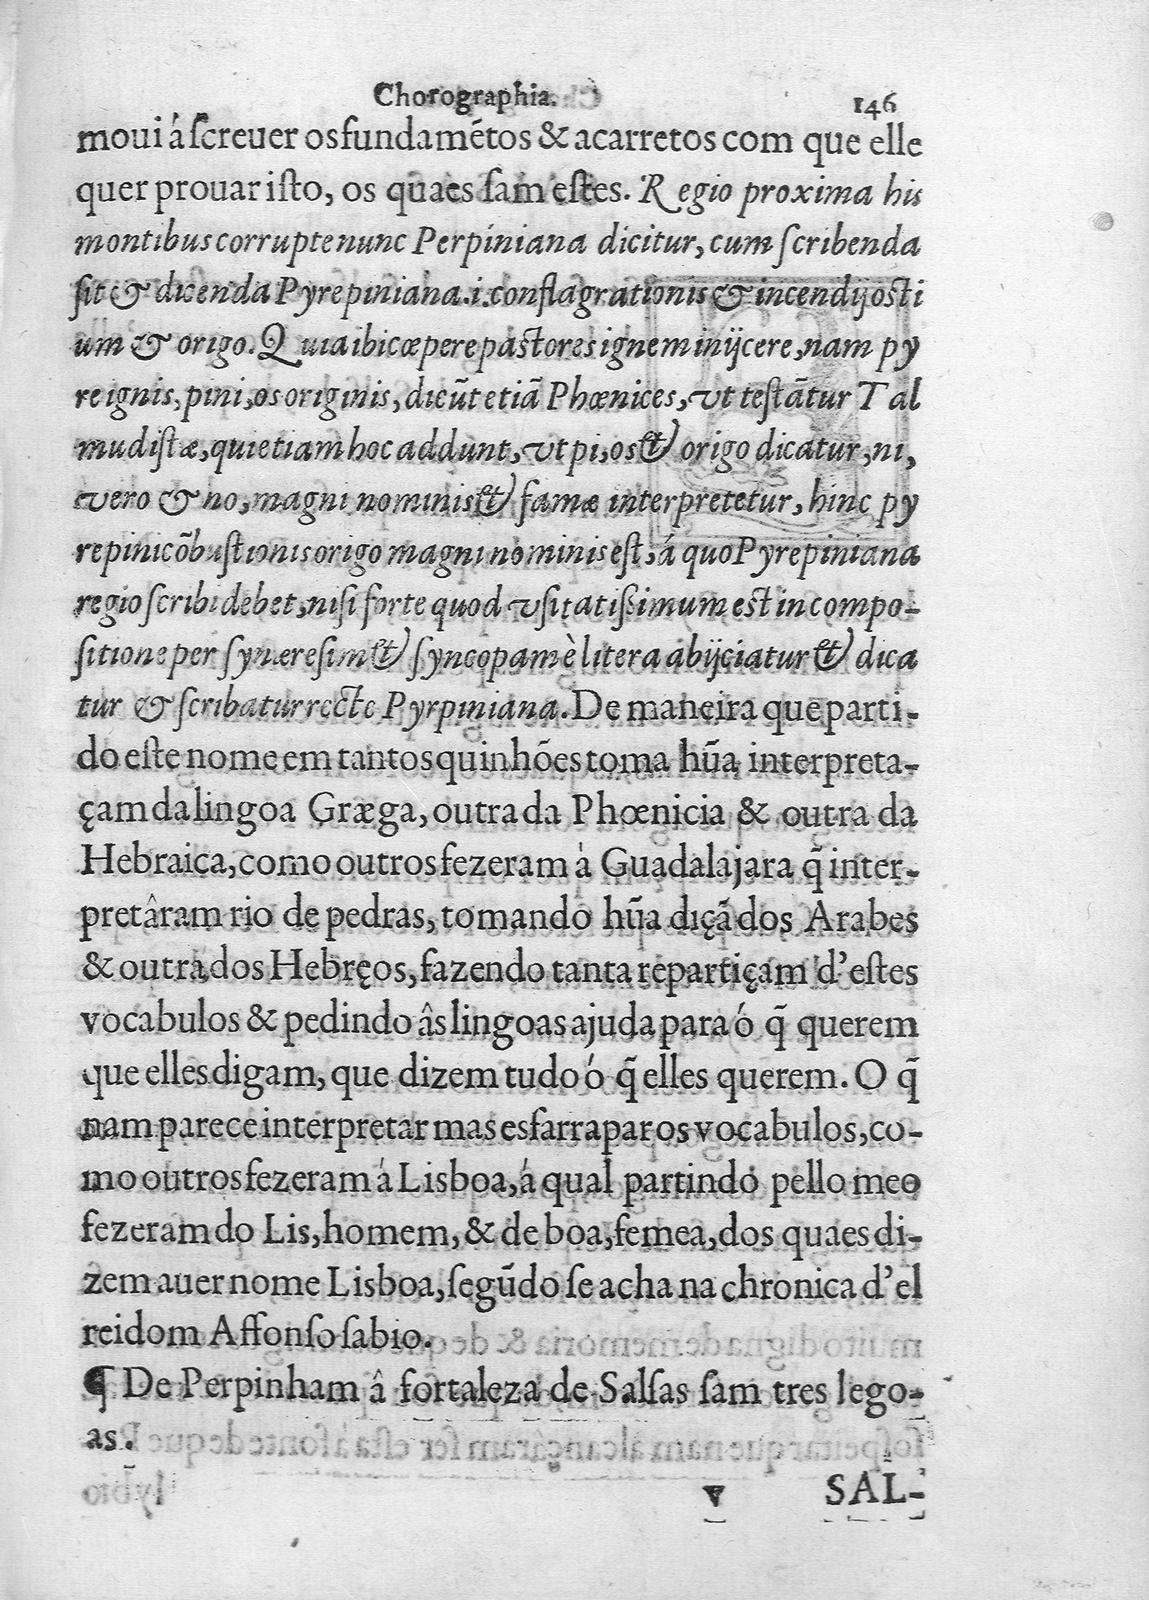 Chorographia. 146
moui á ſcreuer os fundamẽtos & acarretos com que elle
quer prouar iſto, os quaes ſam eſtes. Regio proxima his
montibus corrupte nunc Perpiniana dicitur, cum ſcribenda
ſit & dicenda Pyrepiniana .i. conflagrationis & incendij oſti
um & origo. Quia ibi cœpere paſtores ignem inijcere, nam py
re ignis, pini, os originis, dicũt etiã Phœnices, vt teſtãtur Tal
mudiſtæ, qui etiam hoc addunt, vt pi, os & origo dicatur, ni,
vero & no, magni nominis & famæ interpretetur, hinc py
repini cõbuſtionis origo magni nominis eſt, á quo Pyrepiniana
regio ſcribi debet, niſi forte quod vſitatiſſimum eſt in compo-
ſitione per ſynæreſim & ſyncopam è litera abijciatur & dica
tur & ſcribatur recte Pyrpiniana. De maneira que parti-
do eſte nome em tantos quinhões toma hũa interpreta-
çam da lingoa Græga, outra da Phœnicia & outra da
Hebraica, como outros fezeram á Guadalajara q̃ inter-
pretâram rio de pedras, tomando hũa diçã dos Arabes
& outra dos Hebręos, fazendo tanta repartiçam d’eſtes
vocabulos & pedindo âs lingoas ajuda para ó q̃ querem
que elles digam, que dizem tudo ó q̃ elles querem. O q̃
nam parece interpretar mas esfarrapar os vocabulos, co-
mo outros fezeram á Lisboa, á qual partindo pello meo
fezeram do Lis, homem, & de boa, femea, dos quaes di-
zem auer nome Lisboa, ſegũdo ſe acha na chronica d’el
rei dom Affonſo ſabio.
¶ De Perpinham â fortaleza de Salſas ſam tres lego-
as.
v SAL-